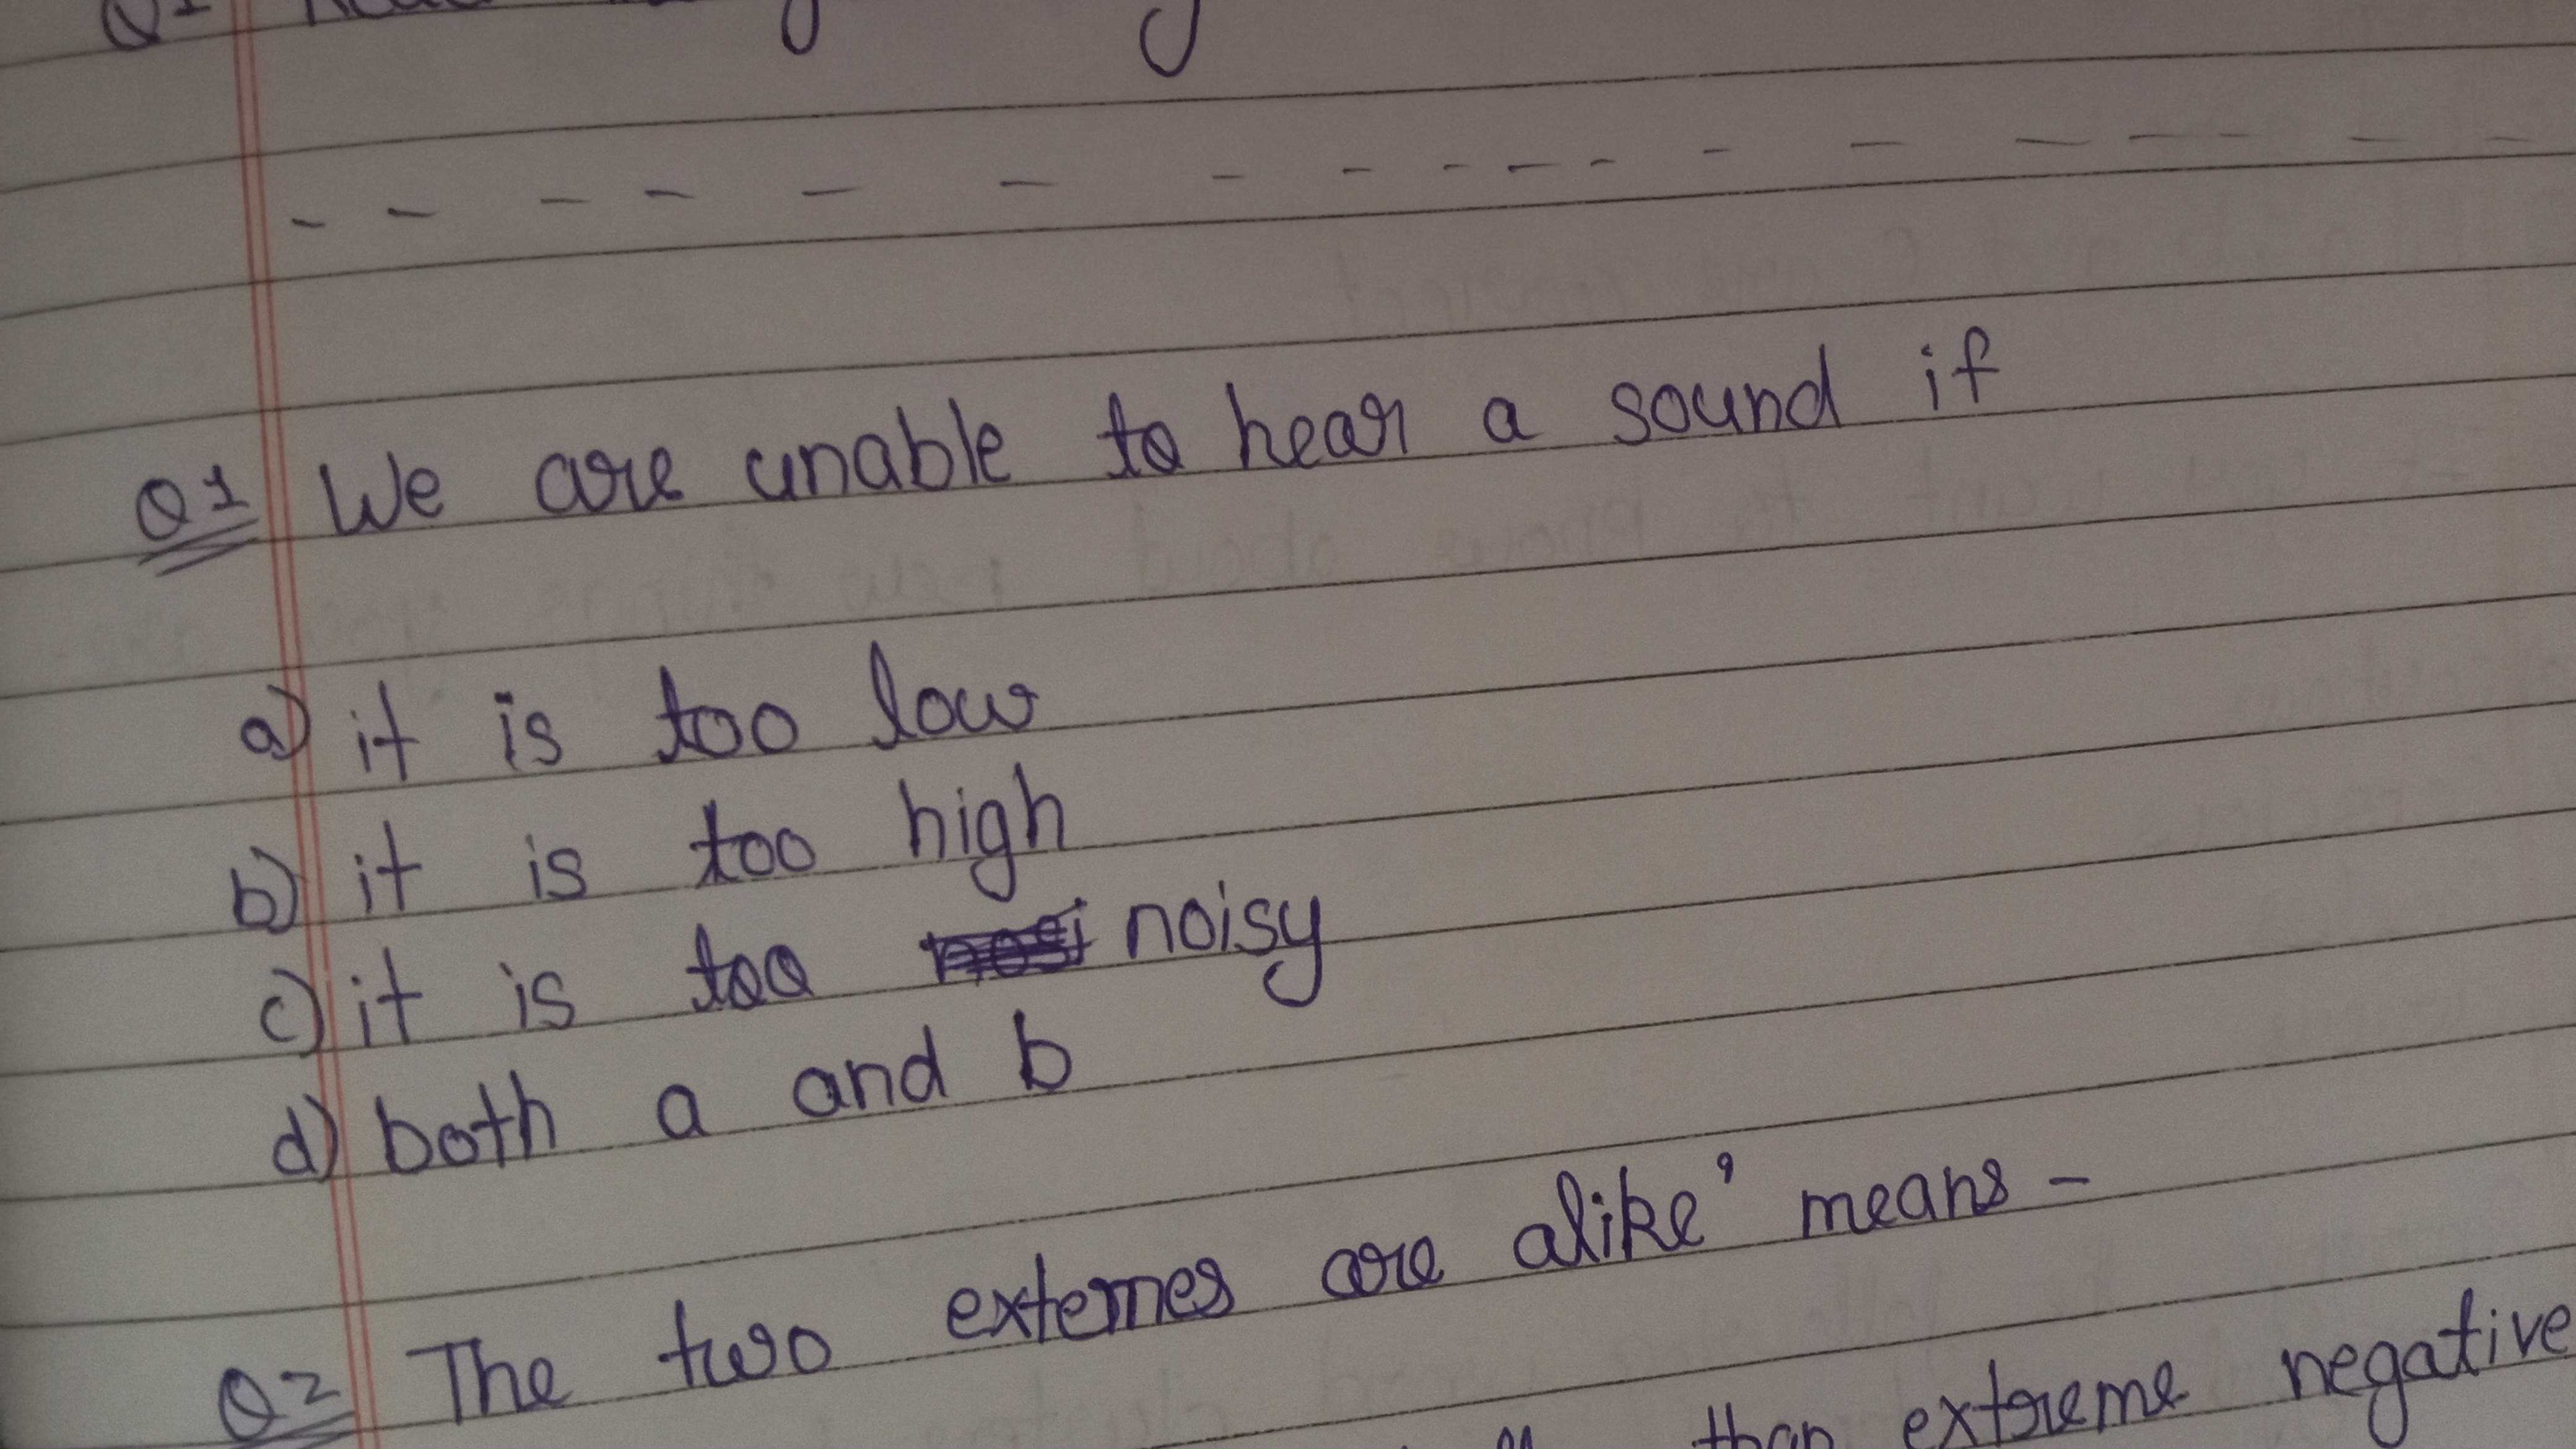 Q1
- - - - - - - - - - - - - - - - - -
Q1 We are unable to hear a sound if
a) it is too low
b) it is too high
c) it is too noisy
d) both a and b
Q2 The two extemes are alike' means -
than extreme negative